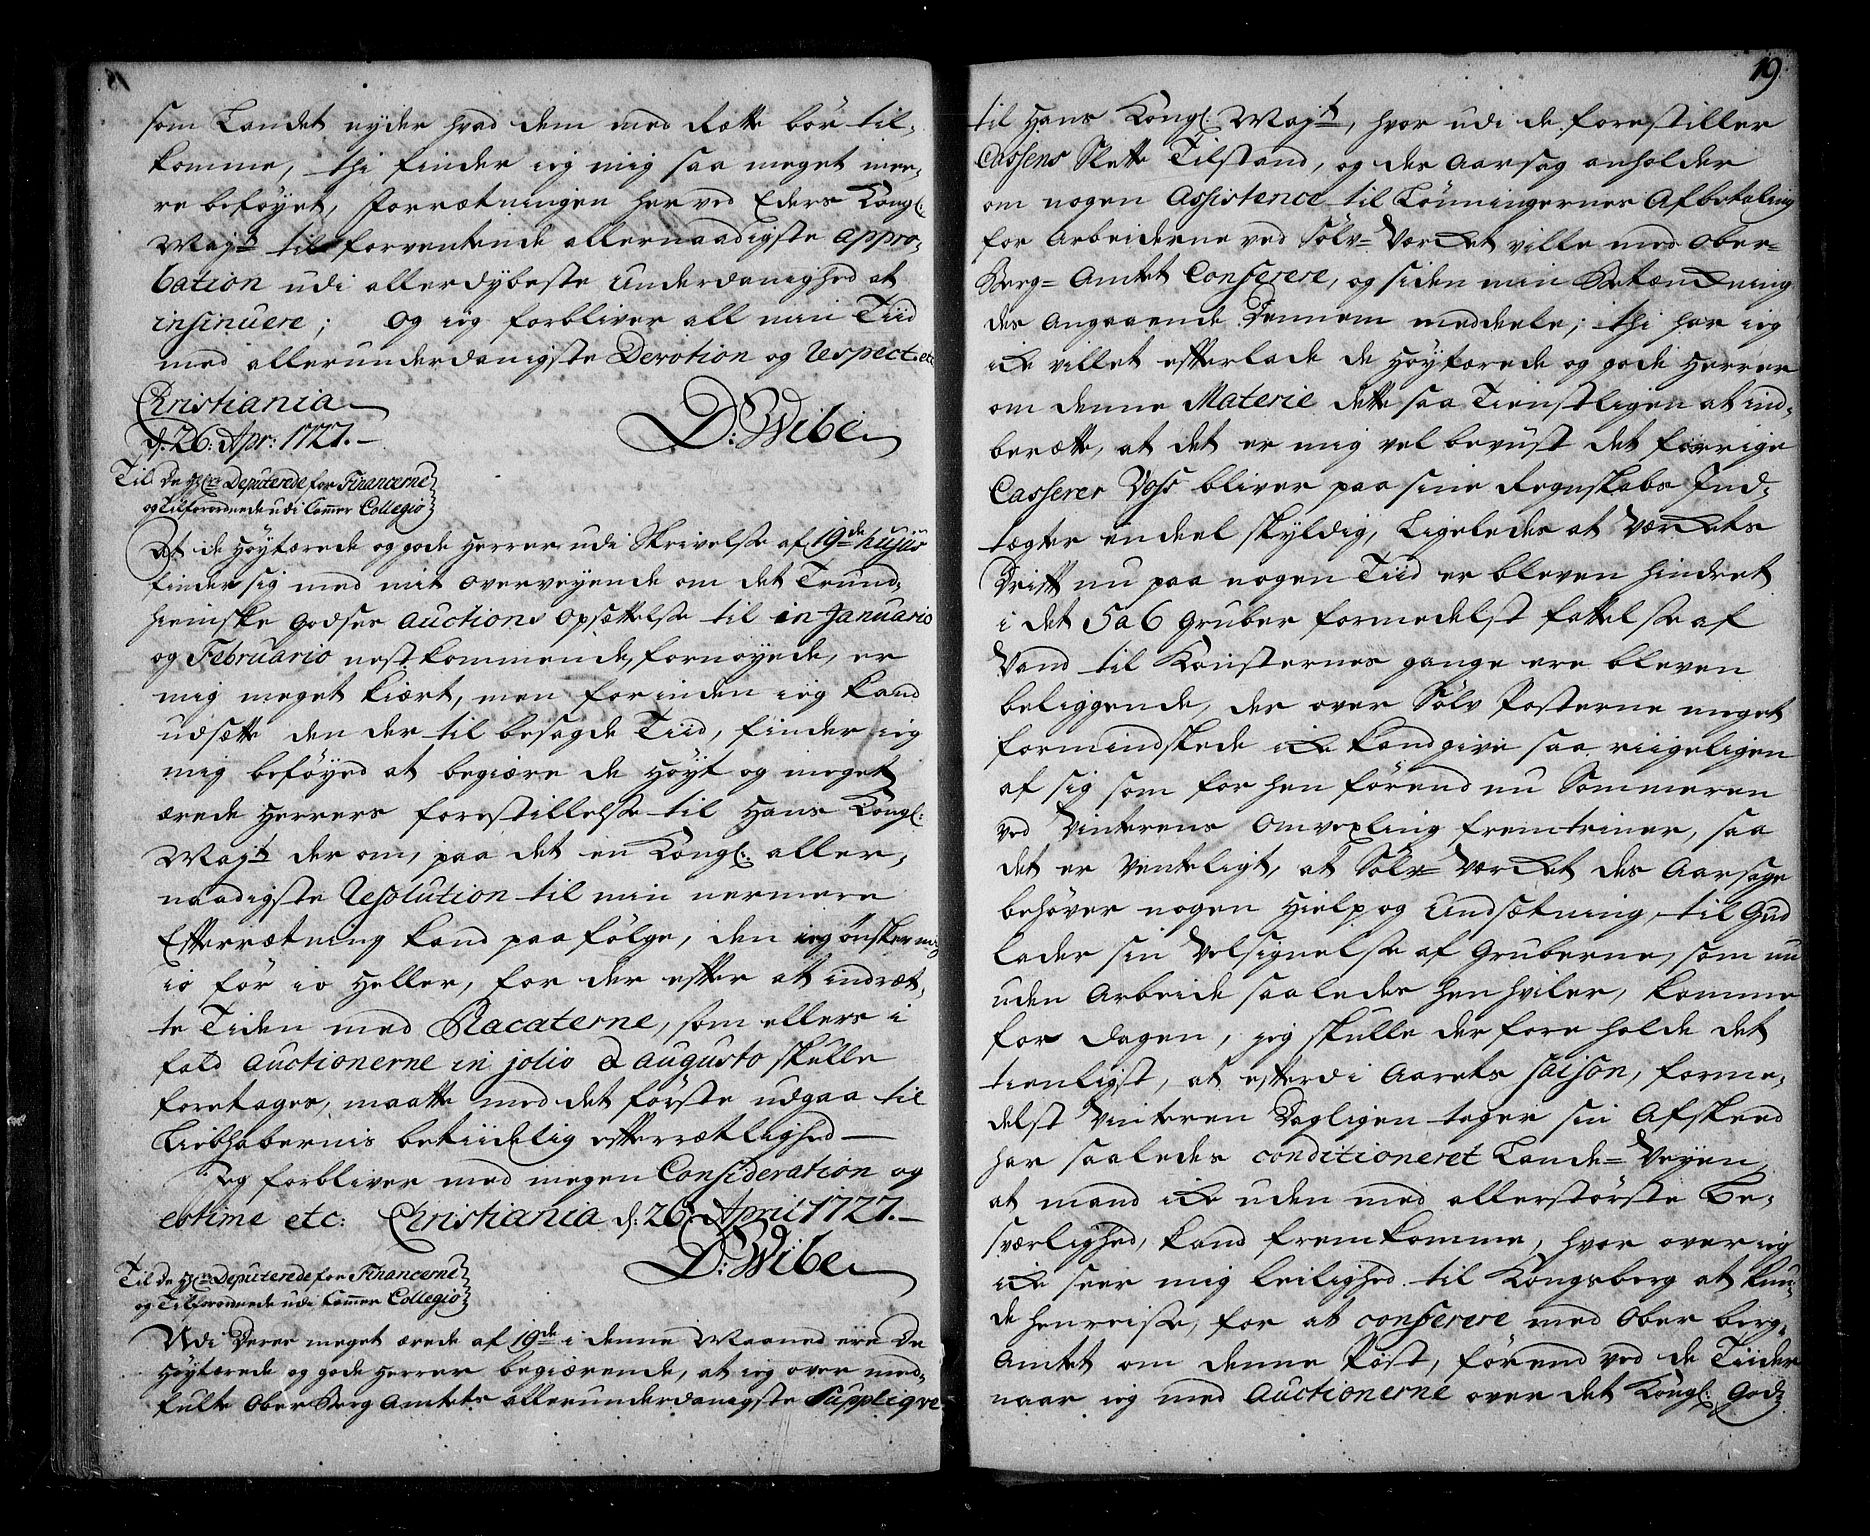 som Landet nyder hvad dem med Rette bör til-
komme, thi finder ieg mig saa meget mee-
re beföyet, Forrætningen her ved Eders Kongl:
Mayt til forventende allernaadigste appro-
bation udi allerdybeste underdanighed at
insinuere; Og ieg forbliver all min Tiid
med allerunderdanigste Devotion og Respect etc
Christiania
d: 26: Apr: 1727.
D: Wibe
Til De HHrr Deputerede for Financerne
og Tilforordnede udi Cammer Collegio
At de Höytærede og gode Herrer udi Skrivelse af 19de hujus
finder sig med mit overveyende om det Trund-
hiemske Godses Auctions Opsættelse til in Januario
og Februario nestkommende, fornöyede, er
mig meget kiært, men forinden ieg kand
udsætte den der til besagde Tiid, finder ieg
mig beföyed at begiære de Höyt og meget
ærede Herrers forestillelse til Hans Kongl:
Mayt der om, paa det en Kongl: aller-
naadigste Resolution til min nermere
Efterrætning kand paa fölge, den ieg önsker mig
io för io heller, for der efter at indræt-
te Tiden med Placaterne, som ellers i
fald Auctionerne in Julio & Augusto skulle
foretages, maatte med det förste udgaa til
Liebhabernis betiidelig efterrætlighed
Jeg forbliver med megen Consideration og
estime etc: Christiania d: 26: April 1727.
D: Wibe
Til De HHrr Deputerede for Financerne
og Tilforordnede udi Cammer Collegio
Udi Deres meget ærede af 19de i denne Maaned ere De
Höytærede og gode Herrer begiærende, at ieg over med-
fulte Ober Berg Amtets allerunderdanigste Suppliqve
19.
til Hans Kongl: Mayt, hvor udi de forestiller
Cassens Slette Tilstand, og des Aarsag anholder
om nogen Assistence til Lönningernes Afbetaling
for Arbeiderne ved Sölv-Værket ville med Ober-
Berg-Amtet Conferere, og siden min Betænkning
des Angaaende Dennem meddeele; thi har ieg
icke villet efterlade de Höytærede og gode Herrer
om denne Materie dette saa Tienstligen at ind-
berætte, at det er mig vel bevust det forrige
Casserer Voss bliver paa sine Regnskabs Ind-
tægter en deel skyldig, Ligeledes at Værkets
Drift nu paa nogen Tiid er bleven hindret
i det 5 a 6 Gruber formedelst fattelse af
Vand til Konsternes gange ere bleven
beliggende, der over Sölv Posterne meget
formindskede icke kand give saa riigeligen
af sig som for hen förend nu Sommeren
ved Vinterens Omvexling fremtriner, saa
det er Venteligt, at Sölv-Værket des Aarsage
behöver nogen Hielp og Undsætning, til Gud
lader sin Velsignelse af Gruberne, som nu
uden Arbeide saaledes henhviler, komme
for dagen, jeg skulle derfore holde det
tienligst, at efterdi Aarets saison, forme-
delst Vinteren Dagligen tager sin Afskeed
har saaledes conditioneret Lande-Veyen
at mand icke uden med allerstörste Be-
sværlighed, kand fremkomme, hvor over ieg
icke seer mig leilighed til Kongsberg at kun-
de henreise, for at conferere med Ober berg-
Amtet om denne Post, förend ved de Tiider
naar ieg med Auctionerne over det Kongl: God-